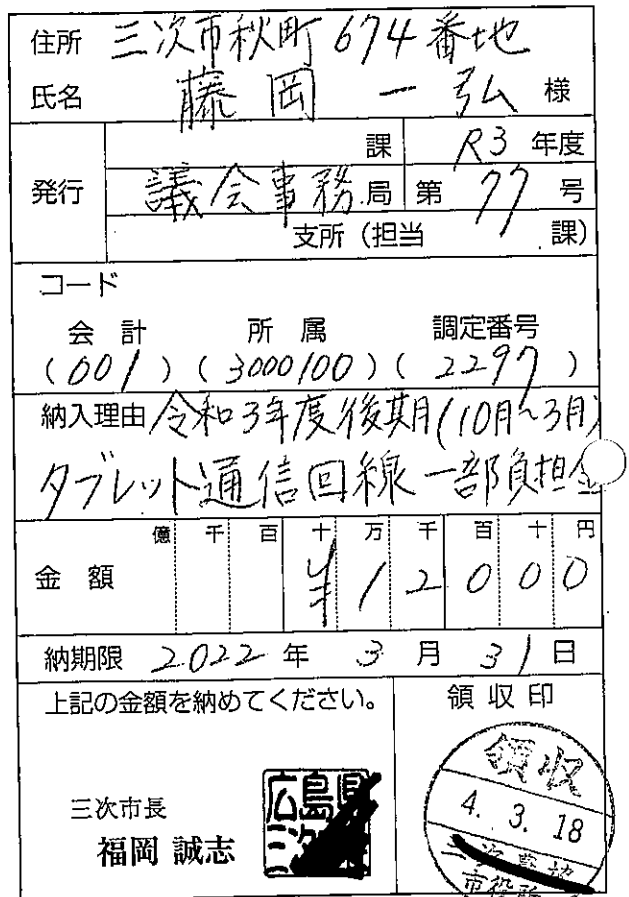 住所 三次市秋町674番地
氏名 藤岡 一弘 様
課 R3 年度
発行 議会事務局 第 77 号
支所（担当 課）
コード
会計 所属 調定番号
(001) (3000100) (2297)
納入理由 令和3年度後期(10月~3月)
タブレット通信回線一部負担金
億 千 百 十 万 千 百 十 円
金額 ¥12000
納期限 2022年 3月 31日
上記の金額を納めてください。
領収印
三次市長
福岡 誠志
広島県
領収
4. 3. 18